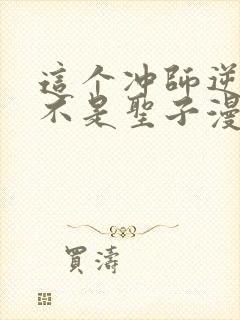 這个冲師逆
不是聖子漫
買濤